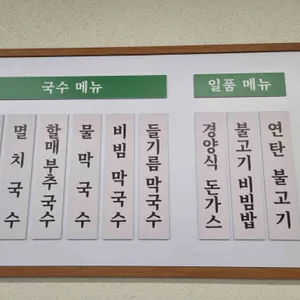 국수 메뉴
멸치국수
할매부추국수
물막국수
비빔막국수
들기름막국수
일품 메뉴
경양식 돈가스
불고기비빔밥
연탄 불고기